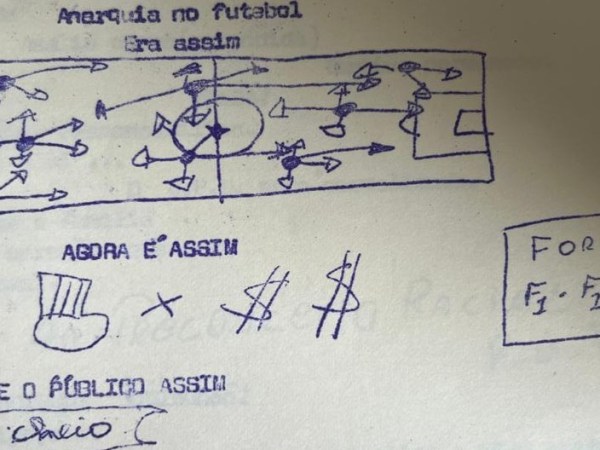 Anarquia no futebol
Era assim
AGORA E´ ASSIM
X $ $
FOR
F1 . F1
E O PÚBLICO ASSIM
cheio